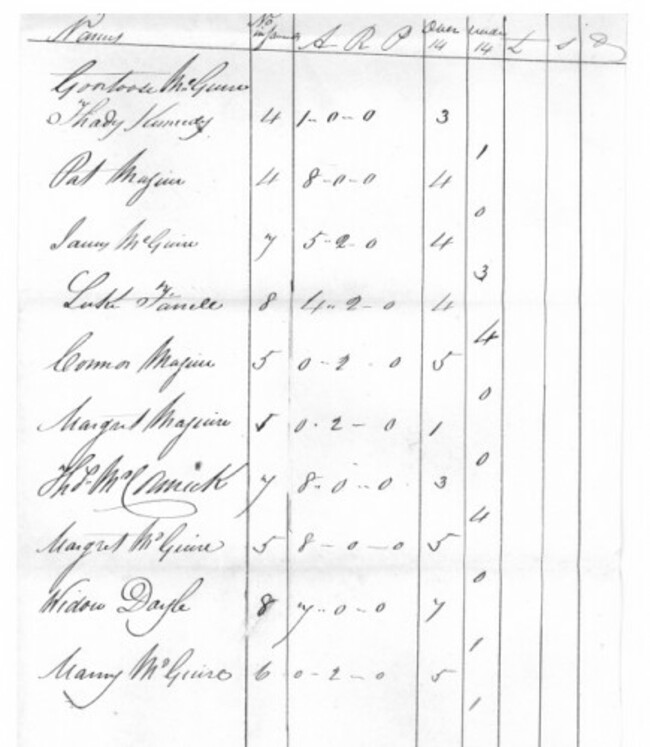 Names No in family A R P Over 14 under 14 £ s D
McGuire
Thady Kennedy 4 1-0-0 3
1
Pat Maguire 4 8-0-0 4
0
James McGuire 7 5-2-0 4
3
Luke Farrell 8 4-2-0 4
4
Connor Maguire 5 0-2-0 5
0
Margret Maguire 5 0-2-0 1
0
Thos. McCormick 7 8-0-0 3
4
Margret McGuire 5 8-0-0 5
0
Widow Doyle 8 7-0-0 7
1
McGuire 6 0-2-0 5
1